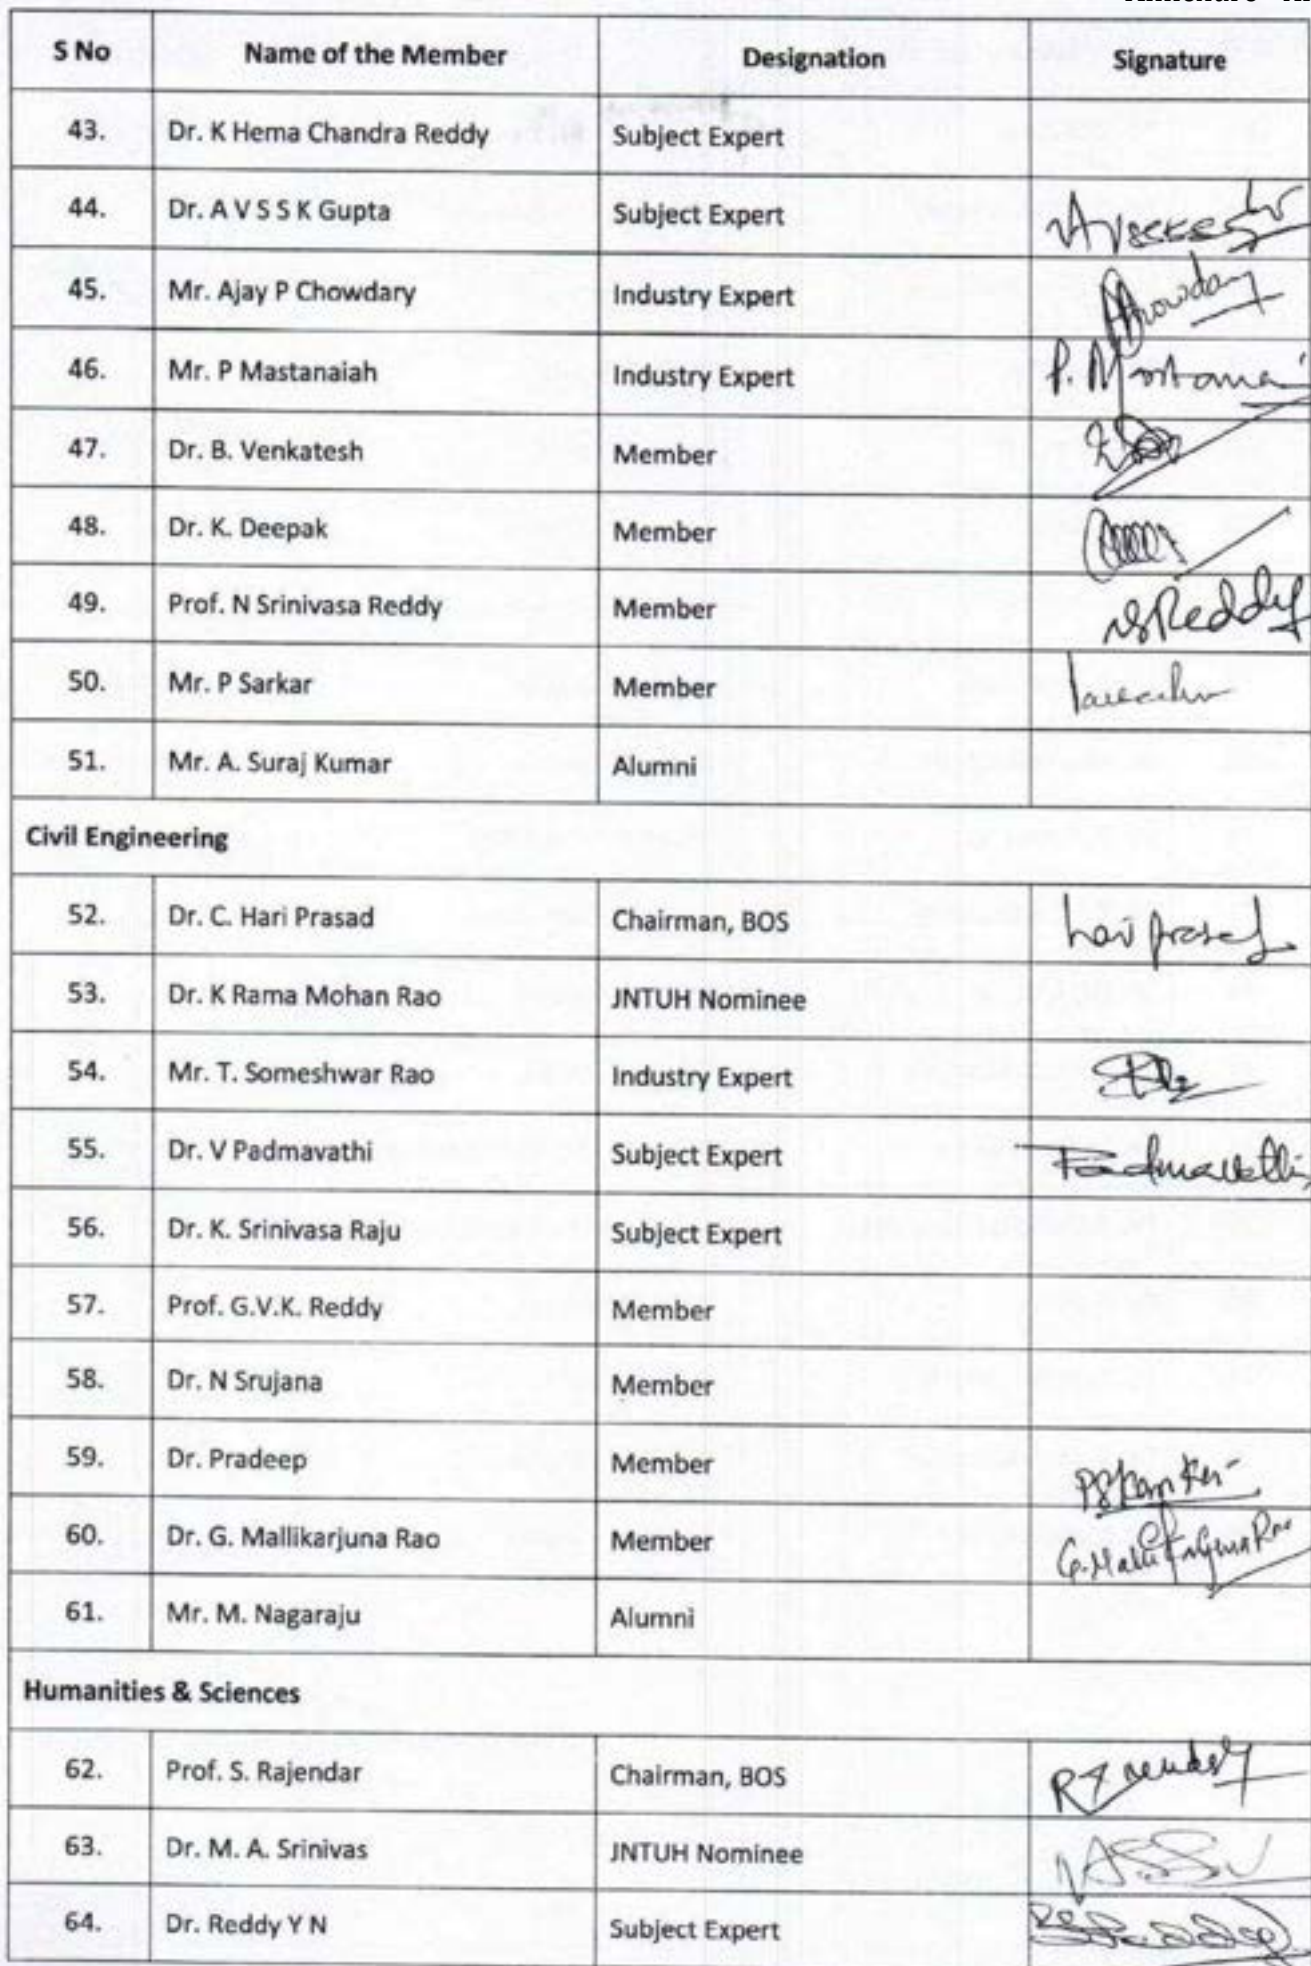 S No Name of the Member Designation Signature
43. Dr. K Hema Chandra Reddy Subject Expert
44. Dr. A V S S K Gupta Subject Expert
45. Mr. Ajay P Chowdary Industry Expert Chowdary
46. Mr. P Mastanaiah Industry Expert
47. Dr. B. Venkatesh Member
48. Dr. K. Deepak Member
49. Prof. N Srinivasa Reddy Member NSReddy
50. Mr. P Sarkar Member
51. Mr. A. Suraj Kumar Alumni
Civil Engineering
52. Dr. C. Hari Prasad Chairman, BOS hari prasad
53. Dr. K Rama Mohan Rao JNTUH Nominee
54. Mr. T. Someshwar Rao Industry Expert
55. Dr. V Padmavathi Subject Expert Padmavathi
56. Dr. K. Srinivasa Raju Subject Expert
57. Prof. G.V.K. Reddy Member
58. Dr. N Srujana Member
59. Dr. Pradeep Member
60. Dr. G. Mallikarjuna Rao Member G. Mallikarjuna Rao
61. Mr. M. Nagaraju Alumni
Humanities & Sciences
62. Prof. S. Rajendar Chairman, BOS
63. Dr. M. A. Srinivas JNTUH Nominee
64. Dr. Reddy Y N Subject Expert